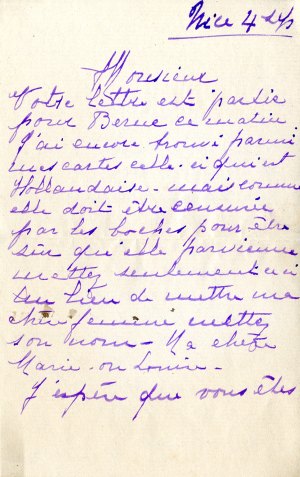 Nice 4
Monsieur
Votre lettre est partie
pour Berne ce matin
J'ai encore trouvé parmi
mes cartes celle-ci qui est
Hollandaise - mais comme
elle doit être censurée
par les boches pour être
sûr qu'elle parvienne
mettez seulement ceci
au lieu de mettre ma
chère femme mettez
son nom - Ma chère
Marie - ou Louise -
J'espère que vous êtes